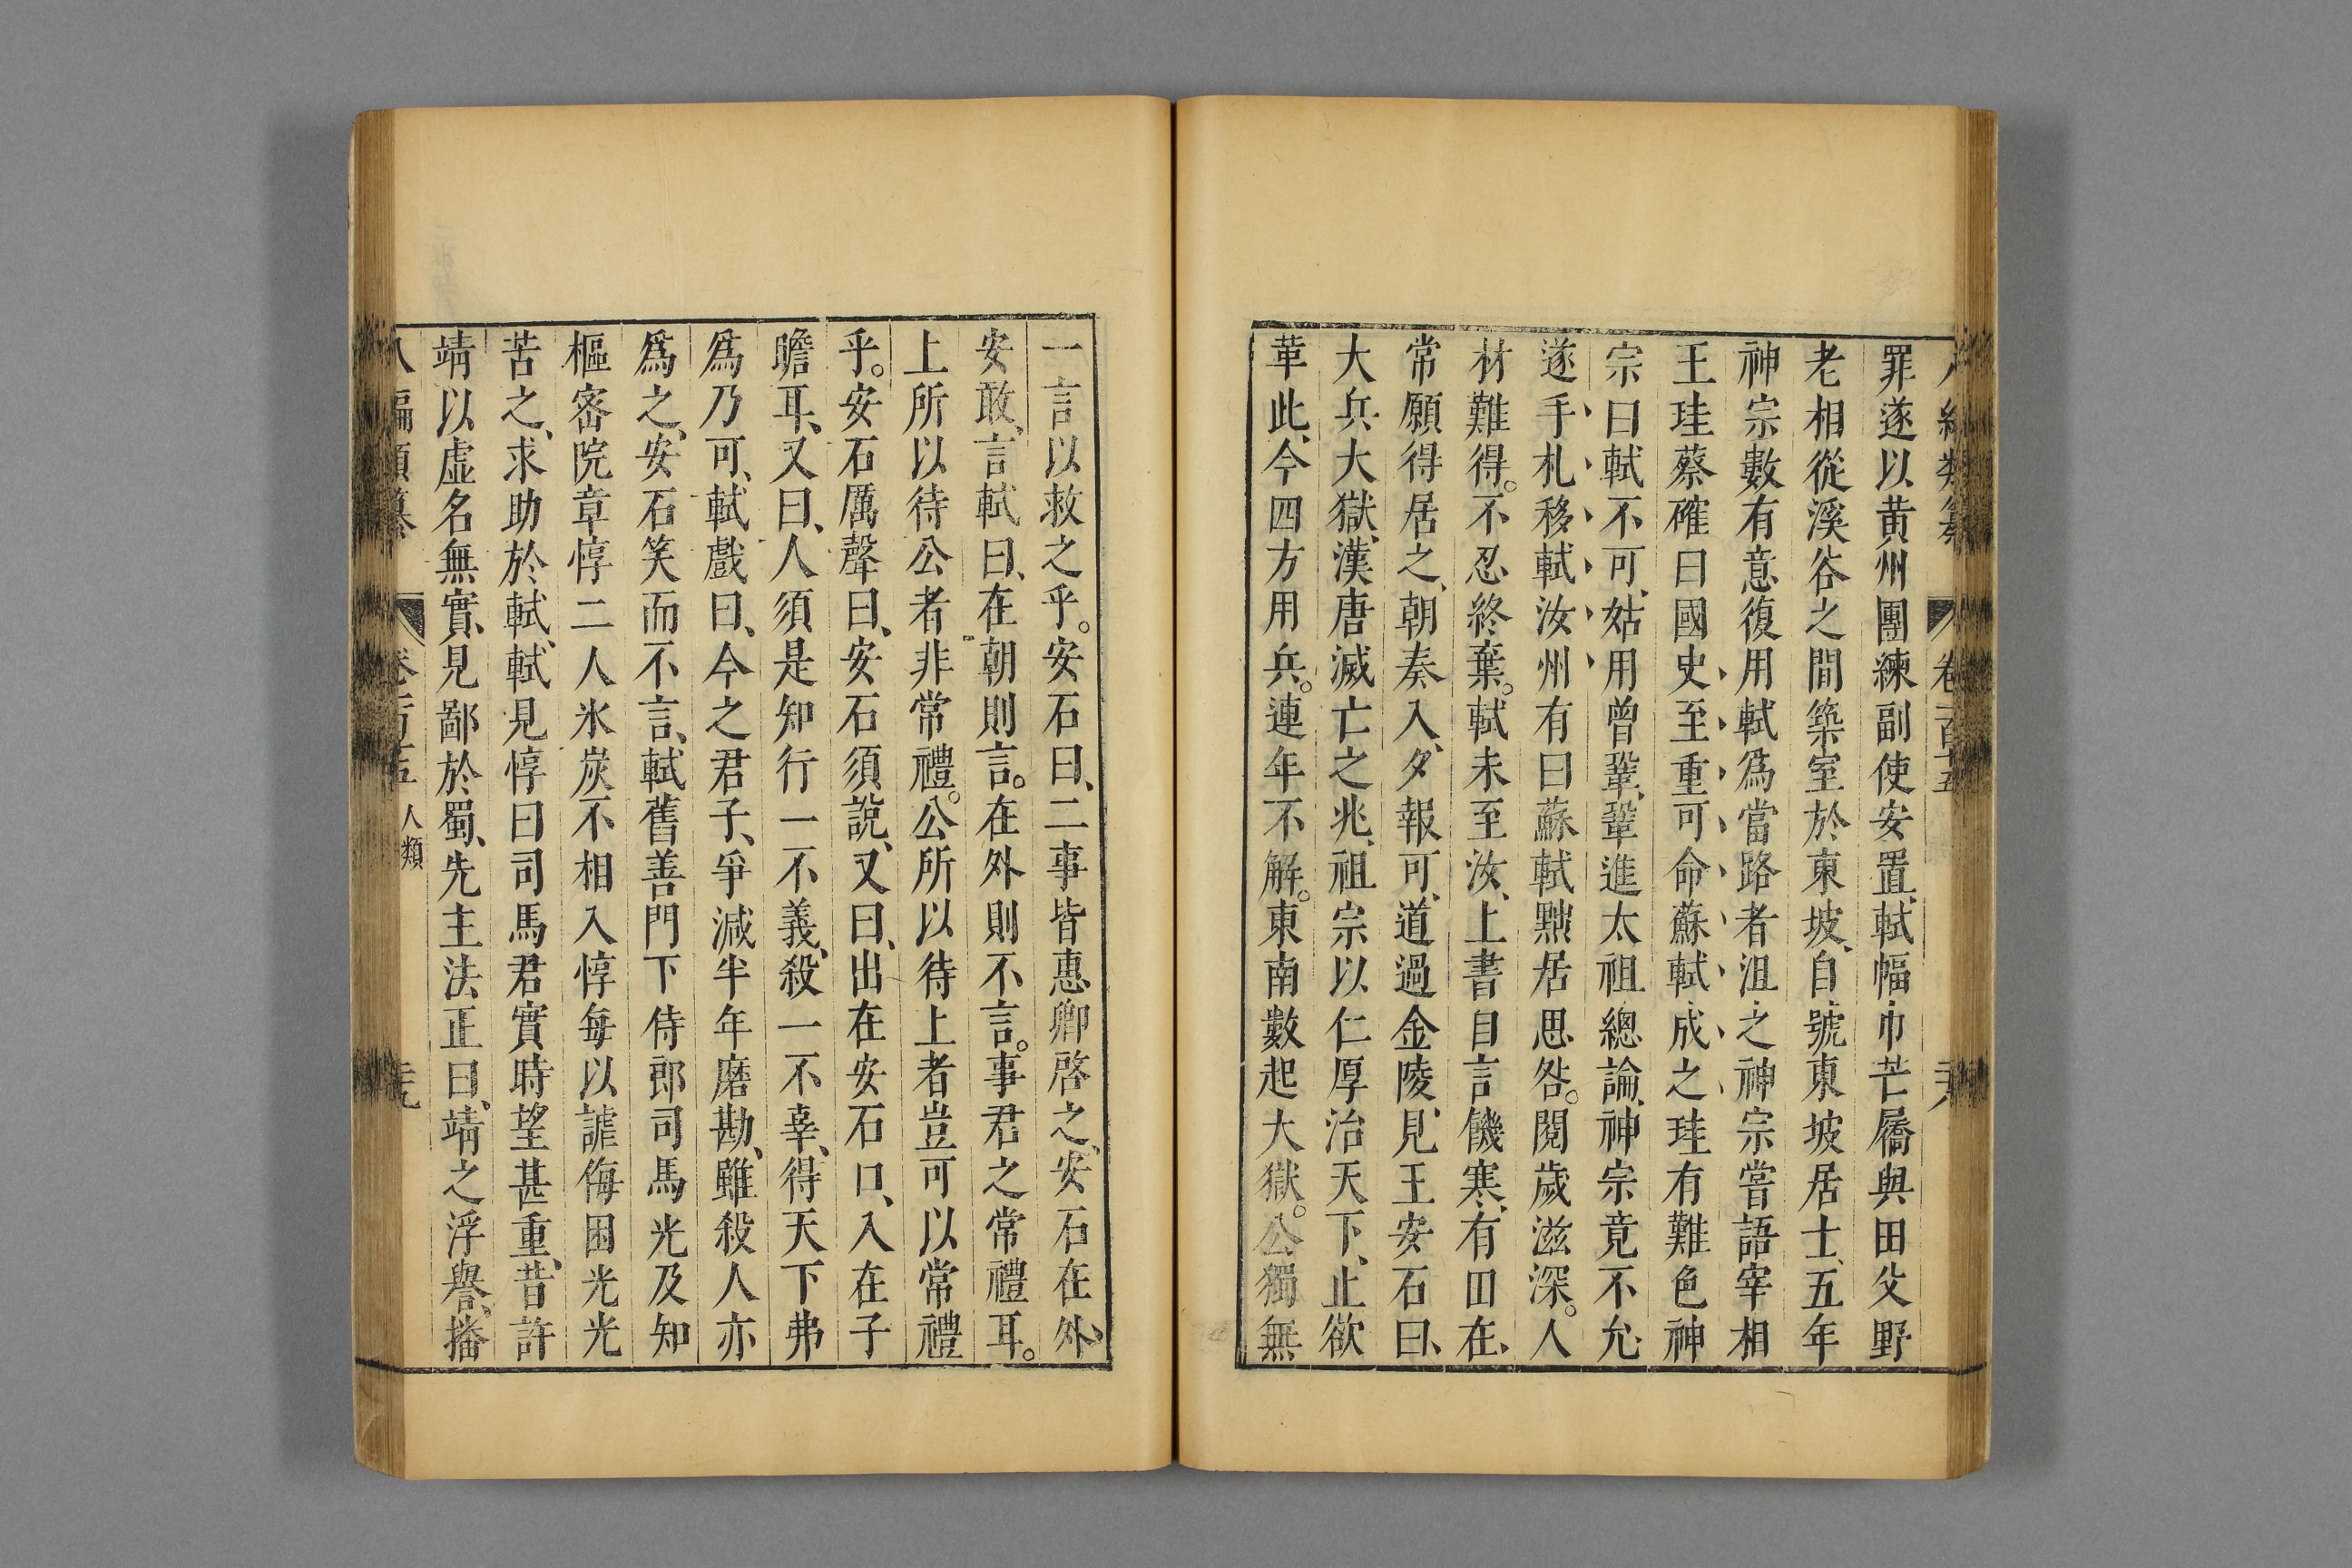 罪遂以黄州團練副使安置、軾幅巾芒屩與田父野
老相從溪谷之間築室於東坡、自號東坡居士、五年
神宗數有意復用軾爲當路者沮之神宗嘗語宰相
王珪蔡確曰國史至重可命蘇軾成之珪有難色神
宗曰軾不可、姑用曾鞏、鞏進太祖總論、神宗竟不允
遂手札移軾汝州有曰蘇軾黜居思咎。閱歲滋深。人
材難得。不忍終棄。軾未至汝、上書自言饑寒、有田在、
常願得居之、朝奏入、夕報可、道過金陵、見王安石曰、
大兵大獄、漢唐滅亡之兆、祖宗以仁厚治天下、止欲
革此、今四方用兵。連年不解。東南數起大獄。公獨無
一言以救之乎。安石曰、二事皆惠卿啓之、安石在外、
安敢、言軾曰、在朝則言。在外則不言。事君之常禮耳。
上所以待公者非常禮。公所以待上者豈可以常禮
乎。安石厲聲曰、安石須說、又曰、出在安石口、入在子
瞻耳、又曰、人須是知行一不義、殺一不辜、得天下弗
爲乃可、軾戲曰、今之君子、爭減半年磨勘、雖殺人亦
爲之、安石笑而不言、軾舊善門下侍郎司馬光及知
樞密院章惇二人氷炭不相入惇每以謔侮困光光
苦之、求助於軾、軾見惇曰司馬君實時望甚重、昔許
靖以虛名無實、見鄙於蜀、先主法正曰、靖之浮譽、播
人類